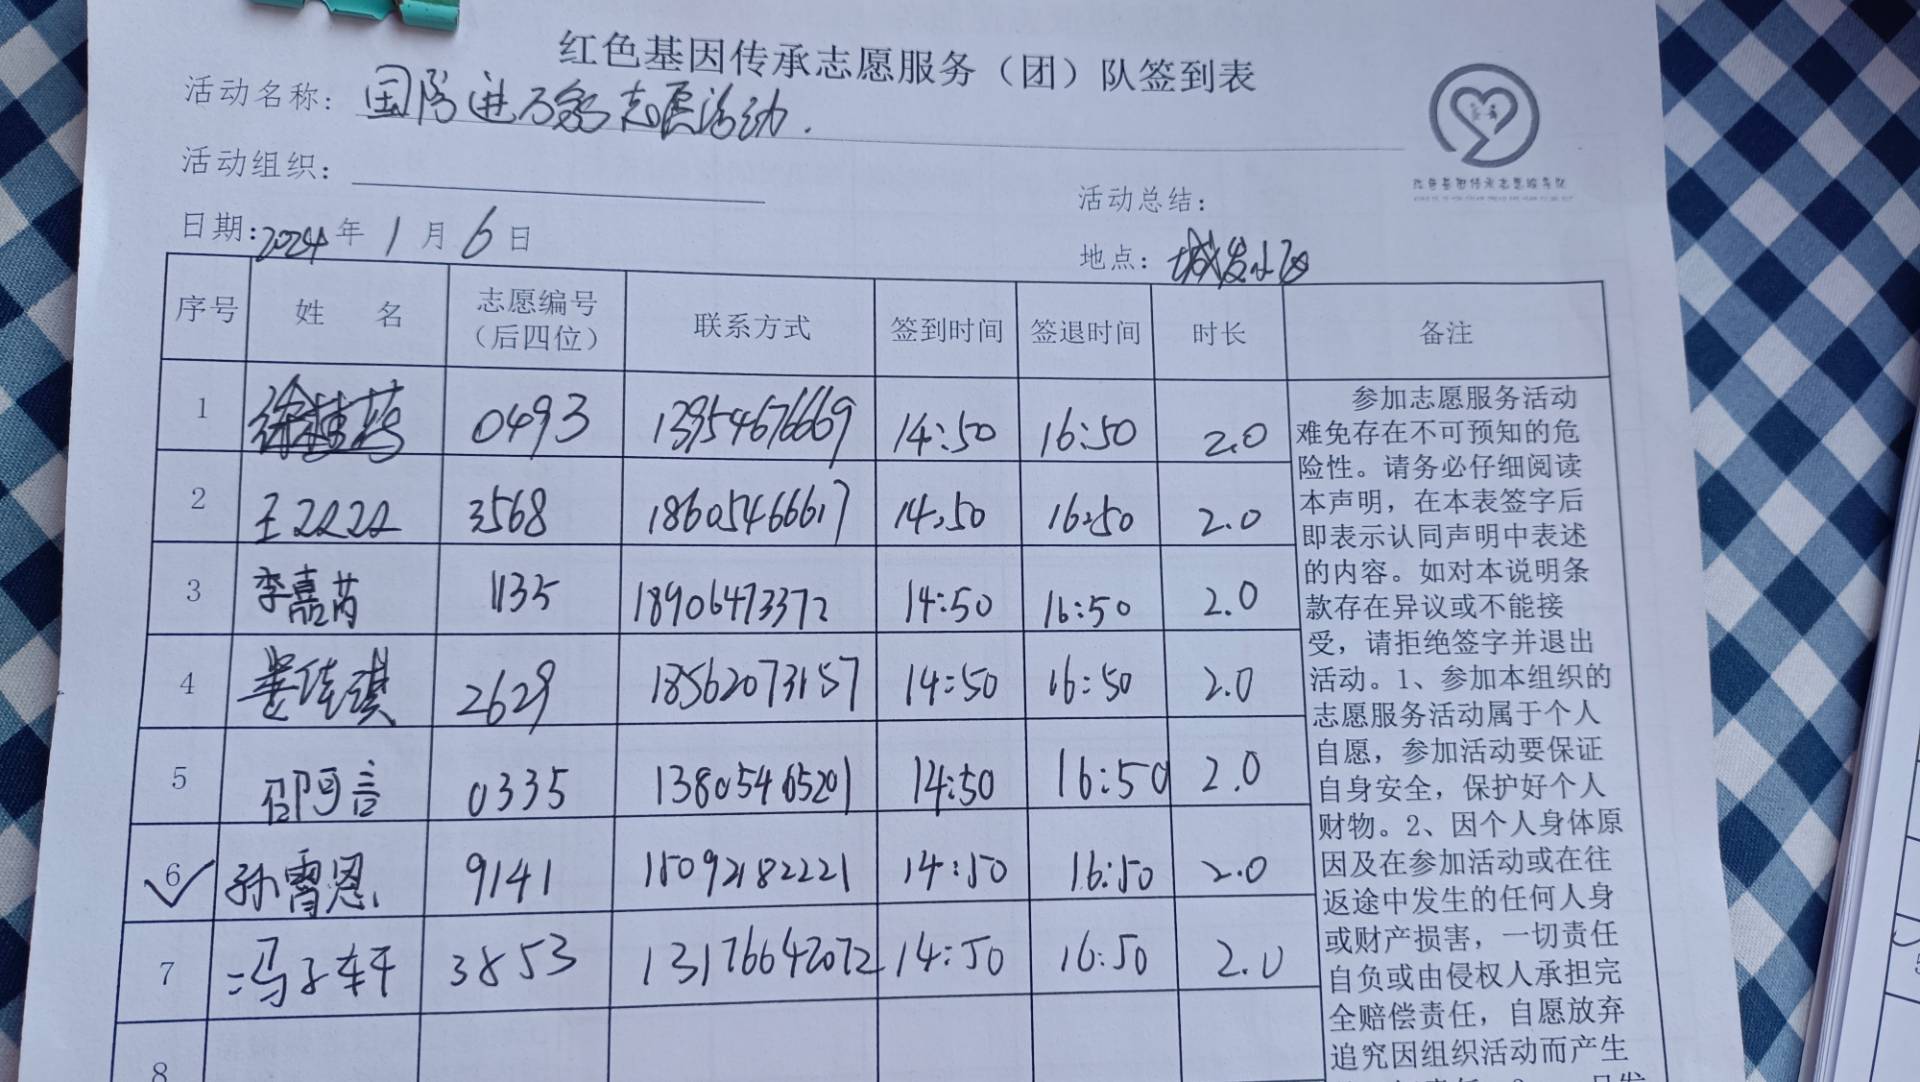 红色基因传承志愿服务（团）队签到表
活动名称: 国防进万家志愿活动.
活动组织:
活动总结:
日期: 2024年1月6日
地点: 城发小区
红色基因传承志愿服务队
序号 姓 名 志愿编号（后四位） 联系方式 签到时间 签退时间 时长 备注
1 0493 13954676669 14:50 16:50 2.0
2 3568 18605466617 14:50 16:50 2.0
3 李嘉芮 1135 18906473372 14:50 16:50 2.0
4 娄佳琪 2629 18562073157 14:50 16:50 2.0
5 邵阿言 0335 13805465201 14:50 16:50 2.0
6 孙霄恩 9141 15092182221 14:50 16:50 2.0
7 冯子轩 3853 13176642072 14:50 16:50 2.0
8
参加志愿服务活动
难免存在不可预知的危
险性。请务必仔细阅读
本声明，在本表签字后
即表示认同声明中表述
的内容。如对本说明条
款存在异议或不能接
受，请拒绝签字并退出
活动。1、参加本组织的
志愿服务活动属于个人
自愿，参加活动要保证
自身安全，保护好个人
财物。2、因个人身体原
因及在参加活动或在往
返途中发生的任何人身
或财产损害，一切责任
自负或由侵权人承担完
全赔偿责任，自愿放弃
追究因组织活动而产生